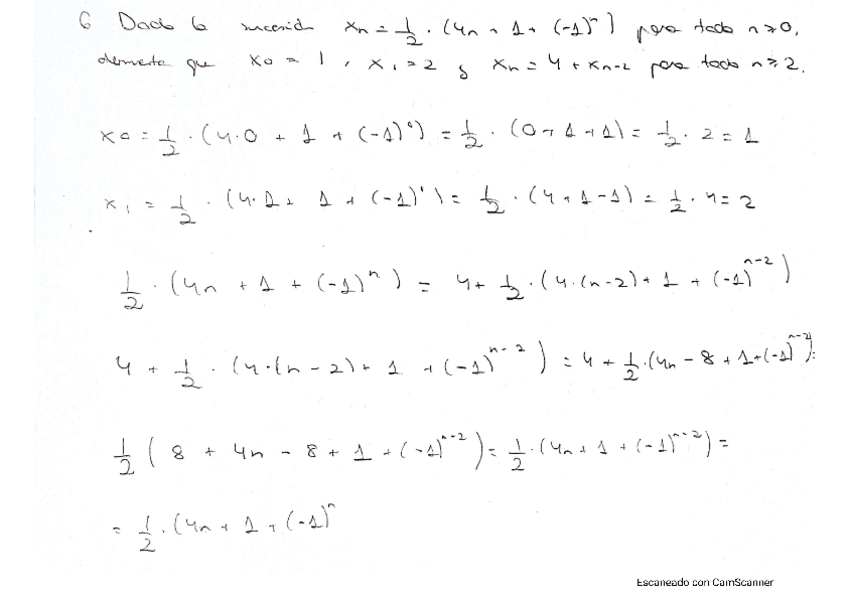 6 Dada la sucesión xn = 1/2 · (4n + 1 + (-1)^n) para todo n ≥ 0,
demuestra que x0 = 1, x1 = 2 y xn = 4 + xn-2 para todo n ≥ 2.
x0 = 1/2 · (4·0 + 1 + (-1)^0) = 1/2 · (0 + 1 + 1) = 1/2 · 2 = 1
x1 = 1/2 · (4·1 + 1 + (-1)^1) = 1/2 · (4 + 1 - 1) = 1/2 · 4 = 2
1/2 · (4n + 1 + (-1)^n) = 4 + 1/2 · (4·(n-2) + 1 + (-1)^n-2)
4 + 1/2 · (4·(n-2) + 1 + (-1)^n-2) = 4 + 1/2 · (4n - 8 + 1 + (-1)^n-2) =
1/2 (8 + 4n - 8 + 1 + (-1)^n-2) = 1/2 · (4n + 1 + (-1)^n-2) =
= 1/2 · (4n + 1 + (-1)^n
Escaneado con CamScanner